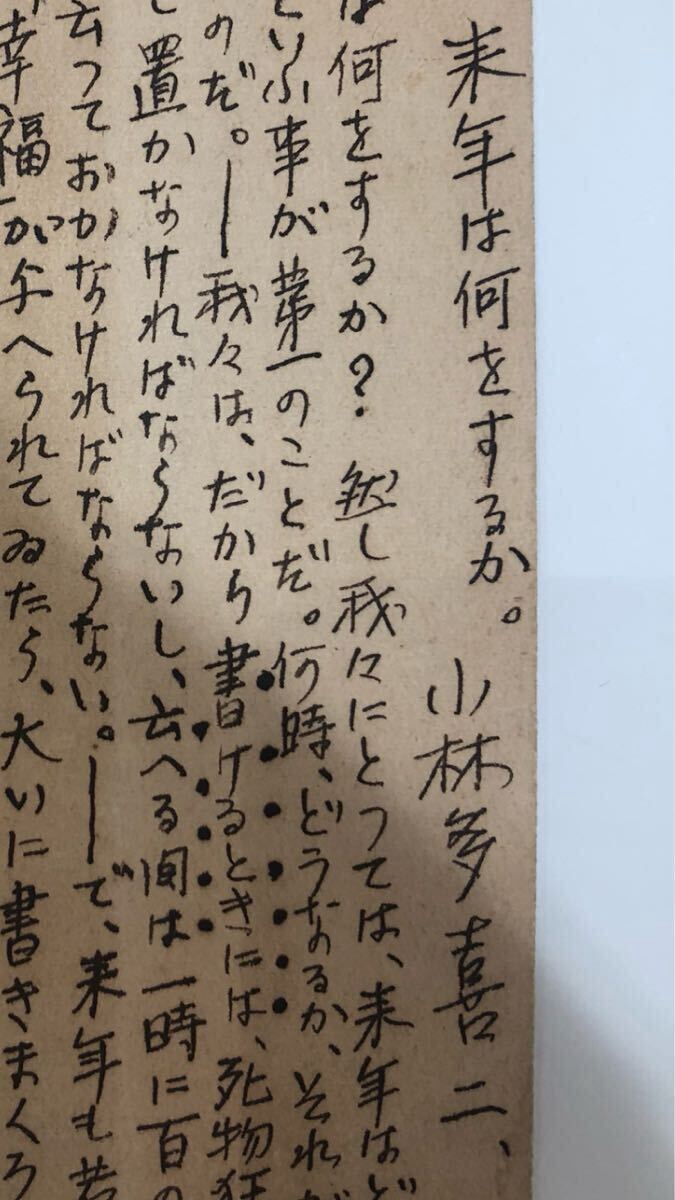 来年は何をするか。 小林多喜二、
は何をするか？ 然し我々にとつては、来年はど
といふ事が第一のことだ。何時、どうなるか、それが
のだ。―我々は、だから書けるときには、死物狂
し置かなければならないし、云へる間は一時に百の
云つておかなければならない。―で、来年も若
幸福が与へられてゐたら、大いに書きまくろ